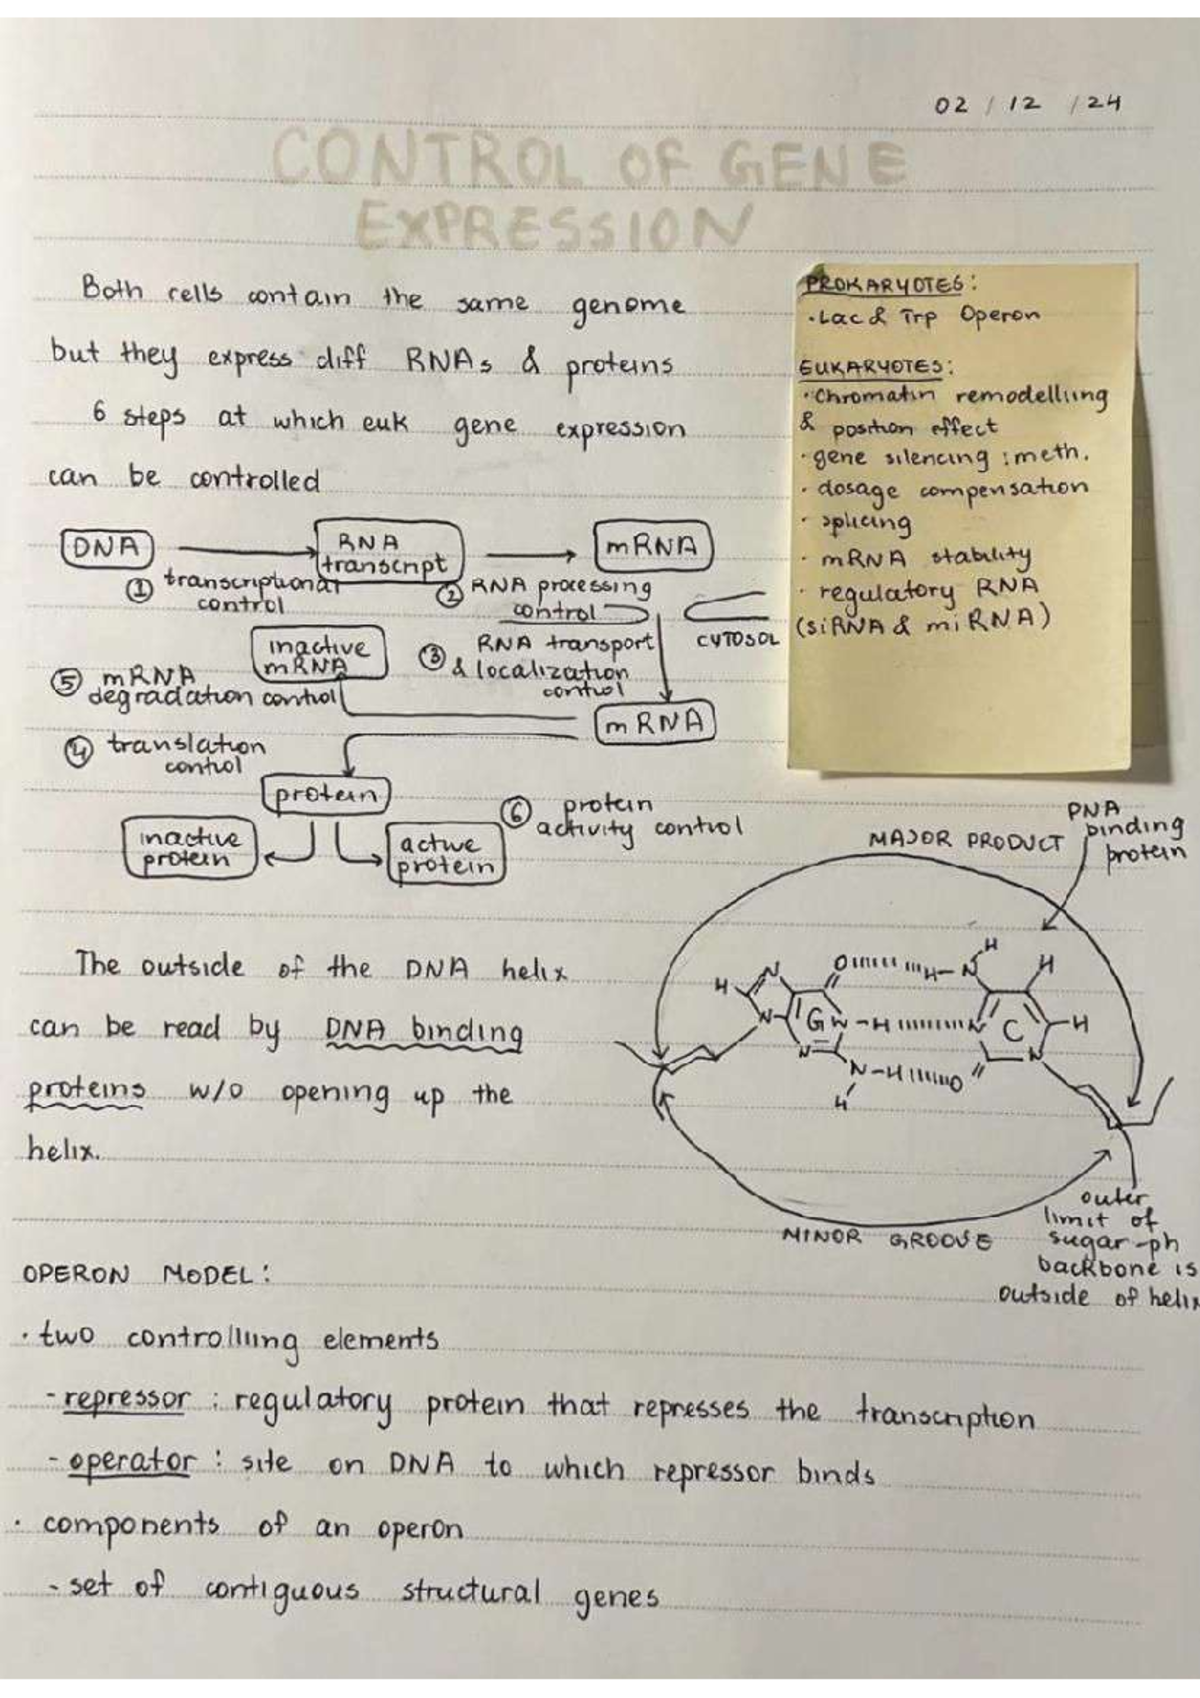 02 / 12 / 24
CONTROL OF GENE
EXPRESSION
Both cells contain the same genome
but they express diff RNAs & proteins
6 steps at which euk gene expression
can be controlled
PROKARYOTES:
• Lac & Trp Operon
EUKARYOTES:
• Chromatin remodelling
& position effect
• gene silencing : meth.
• dosage compensation
• splicing
• mRNA stability
• regulatory RNA
(siRNA & miRNA)
DNA
RNA
transcript
mRNA
① transcriptional
control
② RNA processing
control
CYTOSOL
inactive
mRNA
③ RNA transport
& localization
control
⑤ mRNA
degradation control
mRNA
④ translation
control
protein
inactive
protein
active
protein
⑥ protein
activity control
MAJOR PRODUCT
DNA
binding
protein
The outside of the DNA helix
can be read by DNA binding
proteins w/o opening up the
helix.
H N O H-N H H
N G N-H N C H
N N-H O N
H
MINOR GROOVE
outer
limit of
sugar-ph
backbone is
outside of helix
OPERON MODEL:
• two controlling elements
- repressor : regulatory protein that represses the transcription
- operator : site on DNA to which repressor binds
• components of an operon
- set of contiguous structural genes